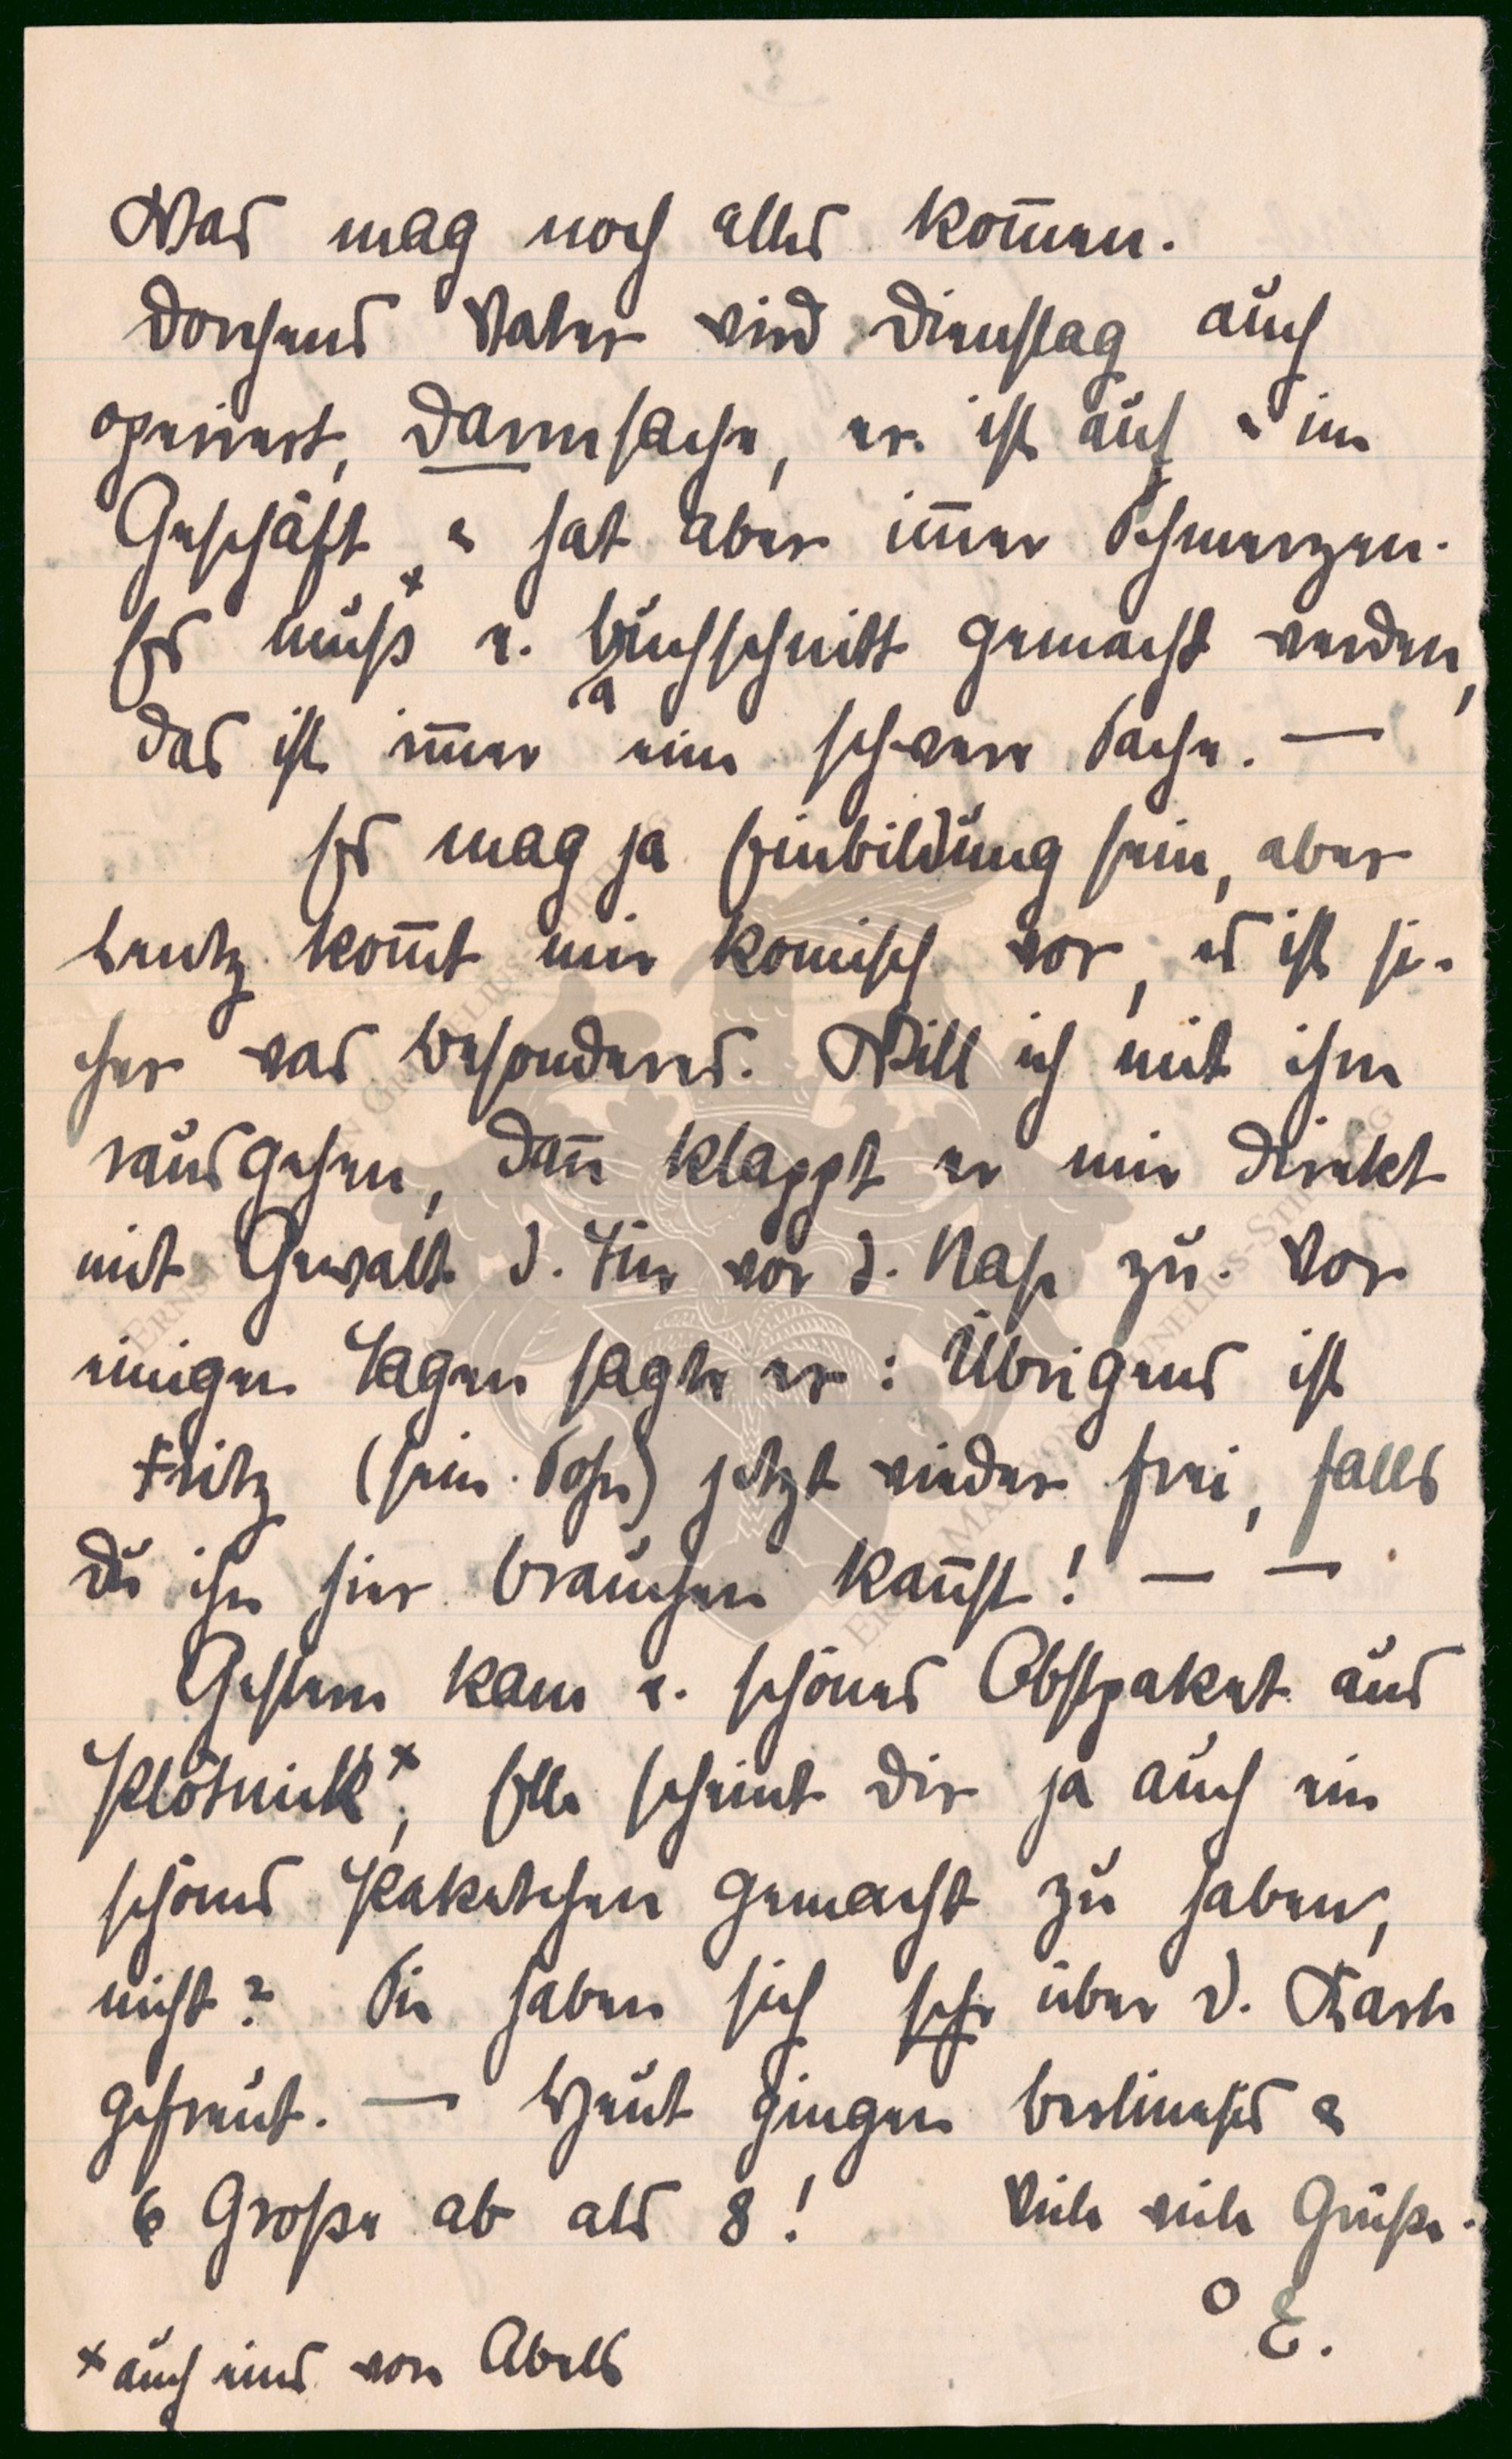 Was mag noch alles kom̄en.
Dorchens Vater wird Dienstag auch
operiert, Darmsache, er ist auch im
Geschäft, hat aber im̄er Schmerzen.
Es muß e. Bauchschnitt gemacht werden,
das ist im̄er eine schwere Sache. —
Es mag ja Einbildung sein, aber
Lentz kom̄t mir komisch vor, es ist si-
cher was besonderes. Will ich mit ihm
rausgehen, dan̄ klappt er mir direkt
mit Gewalt d. Tür vor d. Nase zu. Vor
einigen Tagen sagte er: Übrigens ist
Fritz (sein Sohn) jetzt wieder frei, falls
Du ihn hier brauchen kan̄st! — —
Gestern kam e. schönes Obstpaket aus
Plötnick×, Elle scheint Dir ja auch ein
schönes Paketchen gemacht zu haben,
nicht? Sie haben sich sehr über d. Karte
gefreut. — Heut gingen
6 Große ab als 8! Viele viele Grüße.
O E.
× auch eins von Abells
ERNST MARTIN CORNELIUS-STIFTUNG